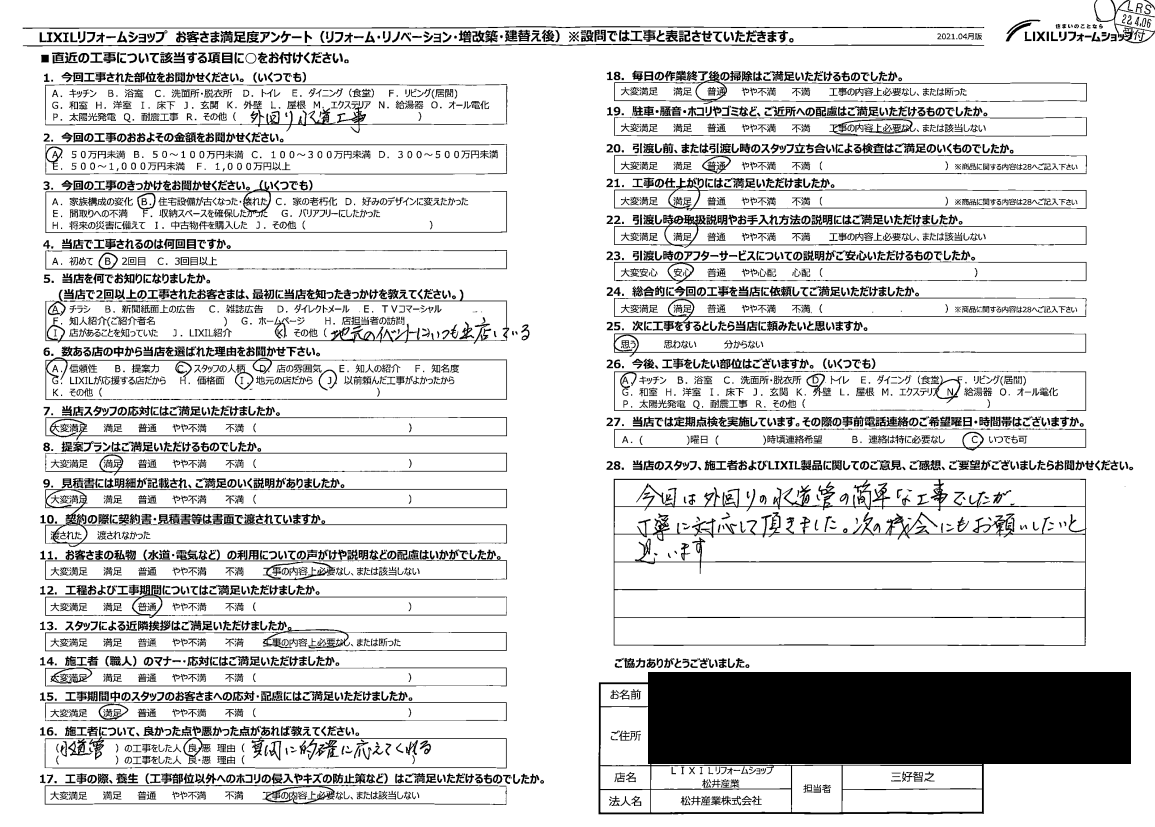 LIXILリフォームショップ お客さま満足度アンケート（リフォーム・リノベーション・増改築・建替え後）※設問では工事と表記させていただきます。
2021.04月版
住まいのことなら
LIXILリフォームショップ
LRS
22.4.06
受付
■直近の工事について該当する項目に○をお付けください。
1．今回工事された部位をお聞かせください。（いくつでも）
A．キッチン B．浴室 C．洗面所・脱衣所 D．トイレ E．ダイニング（食堂） F．リビング(居間)
G．和室 H．洋室 I．床下 J．玄関 K．外壁 L．屋根 M．エクステリア N．給湯器 O．オール電化
P．太陽光発電 Q．耐震工事 R．その他（ 外回り水道工事 ）
2．今回の工事のおおよその金額をお聞かせください。
A．50万円未満 B．50～100万円未満 C．100～300万円未満 D．300～500万円未満
E．500～1,000万円未満 F．1,000万円以上
3．今回の工事のきっかけをお聞かせください。（いくつでも）
A．家族構成の変化 B．住宅設備が古くなった・壊れた C．家の老朽化 D．好みのデザインに変えたかった
E．間取りへの不満 F．収納スペースを確保したかった G．バリアフリーにしたかった
H．将来の災害に備えて I．中古物件を購入した J．その他（ ）
4．当店で工事されるのは何回目ですか。
A．初めて B．2回目 C．3回目以上
5．当店を何でお知りになりましたか。
(当店で2回以上の工事されたお客さまは、最初に当店を知ったきっかけを教えてください。)
A．チラシ B．新聞紙面上の広告 C．雑誌広告 D．ダイレクトメール E．TVコマーシャル
F．知人紹介(ご紹介者名 ) G．ホームページ H．店担当者の訪問
I．店があることを知っていた J．LIXIL紹介 K．その他（地元のイベントにいつも出店している
6．数ある店の中から当店を選ばれた理由をお聞かせ下さい。
A．信頼性 B．提案力 C．スタッフの人柄 D．店の雰囲気 E．知人の紹介 F．知名度
G．LIXILが応援する店だから H．価格面 I．地元の店だから J．以前頼んだ工事がよかったから
K．その他（ ）
7．当店スタッフの応対にはご満足いただけましたか。
大変満足 満足 普通 やや不満 不満 （ ）
8．提案プランはご満足いただけるものでしたか。
大変満足 満足 普通 やや不満 不満 （ ）
9．見積書には明細が記載され、ご満足のいく説明がありましたか。
大変満足 満足 普通 やや不満 不満 （ ）
10．契約の際に契約書・見積書等は書面で渡されていますか。
渡された 渡されなかった
11．お客さまの私物（水道・電気など）の利用についての声がけや説明などの配慮はいかがでしたか。
大変満足 満足 普通 やや不満 不満 工事の内容上必要なし、または該当しない
12．工程および工事期間についてはご満足いただけましたか。
大変満足 満足 普通 やや不満 不満 （ ）
13．スタッフによる近隣挨拶はご満足いただけましたか。
大変満足 満足 普通 やや不満 不満 工事の内容上必要なし、または断った
14．施工者（職人）のマナー・応対にはご満足いただけましたか。
大変満足 満足 普通 やや不満 不満 （ ）
15．工事期間中のスタッフのお客さまへの応対・配慮にはご満足いただけましたか。
大変満足 満足 普通 やや不満 不満 （ ）
16．施工者について、良かった点や悪かった点があれば教えてください。
（水道管 ）の工事をした人 良・悪 理由（ 質問に的確に応えてくれる
（ ）の工事をした人 良・悪 理由（ ）
17．工事の際、養生（工事部位以外へのホコリの侵入やキズの防止策など）はご満足いただけましたか。
大変満足 満足 普通 やや不満 不満 工事の内容上必要なし、または該当しない
18．毎日の作業終了後の掃除はご満足いただけるものでしたか。
大変満足 満足 普通 やや不満 不満 工事の内容上必要なし、または断った
19．駐車・騒音・ホコリやゴミなど、ご近所への配慮はご満足いただけるものでしたか。
大変満足 満足 普通 やや不満 不満 工事の内容上必要なし、または該当しない
20．引渡し前、または引渡し時のスタッフ立ち合いによる検査はご満足のいくものでしたか。
大変満足 満足 普通 やや不満 不満 （ ）※商品に関する内容は28へご記入下さい
21．工事の仕上がりにはご満足いただけましたか。
大変満足 満足 普通 やや不満 不満 （ ）※商品に関する内容は28へご記入下さい
22．引渡し時の取扱説明やお手入れ方法の説明にはご満足いただけましたか。
大変満足 満足 普通 やや不満 不満 工事の内容上必要なし、または該当しない
23．引渡し時のアフターサービスについての説明がご安心いただけるものでしたか。
大変安心 安心 普通 やや心配 心配 （ ）
24．総合的に今回の工事を当店に依頼してご満足いただけましたか。
大変満足 満足 普通 やや不満 不満 （ ）※商品に関する内容は28へご記入下さい
25．次に工事をするとしたら当店に頼みたいと思いますか。
思う 思わない 分からない
26．今後、工事をしたい部位はございますか。（いくつでも）
A．キッチン B．浴室 C．洗面所・脱衣所 D．トイレ E．ダイニング（食堂） F．リビング(居間)
G．和室 H．洋室 I．床下 J．玄関 K．外壁 L．屋根 M．エクステリア N．給湯器 O．オール電化
P．太陽光発電 Q．耐震工事 R．その他（ ）
27．当店では定期点検を実施しています。その際の事前電話連絡のご希望曜日・時間帯はございますか。
A．（ ）曜日（ ）時頃連絡希望 B．連絡は特に必要なし C．いつでも可
28．当店のスタッフ、施工者およびLIXIL製品に関してのご意見、ご感想、ご要望がございましたらお聞かせください。
今回は外回りの水道管の簡単な工事でしたが、
丁寧に対応して頂きました。次の機会にもお願いしたいと
思います
ご協力ありがとうございました。
お名前
ご住所
店名 LIXILリフォームショップ 松井産業 担当者 三好智之
法人名 松井産業株式会社